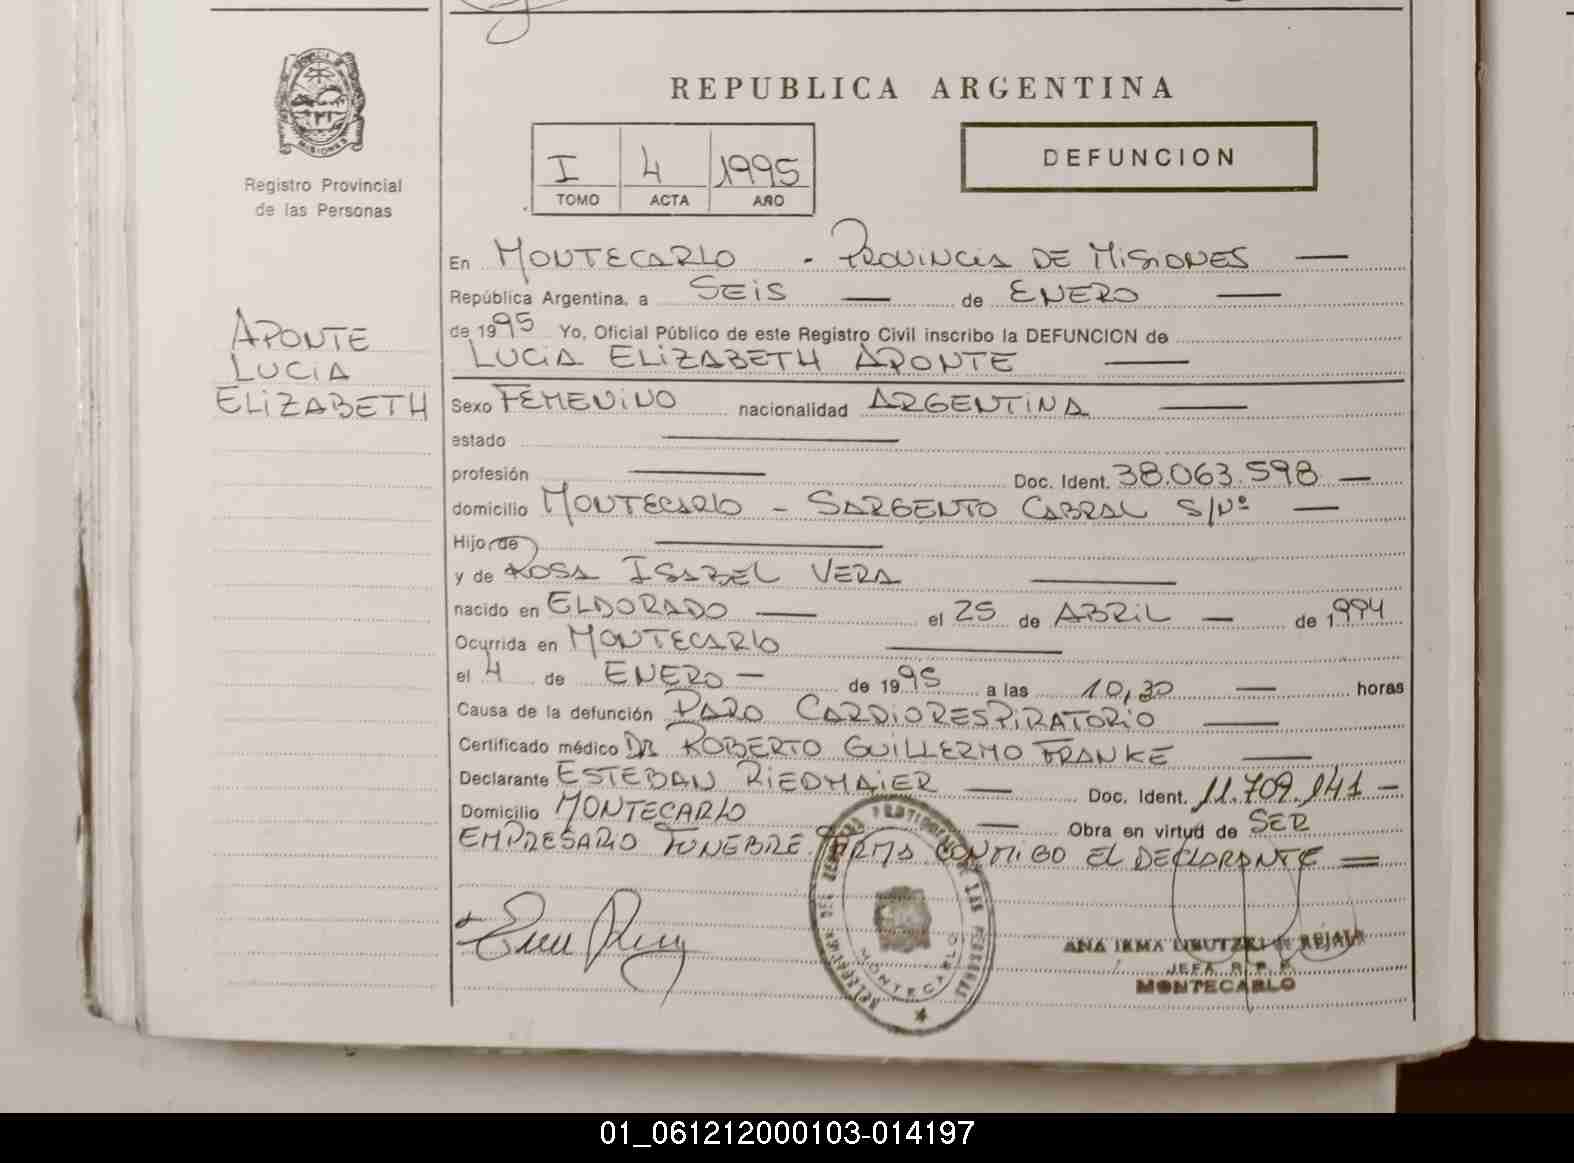 PROVINCIA DE
MISIONES
Registro Provincial
de las Personas
APONTE
LUCIA
ELIZABETH
REPUBLICA ARGENTINA
I 4 1995
TOMO ACTA AÑO
DEFUNCION
En MONTECARLO - PROVINCIA DE MISIONES
República Argentina, a SEIS de ENERO
de 1995 Yo, Oficial Público de este Registro Civil inscribo la DEFUNCION de
LUCIA ELIZABETH APONTE
Sexo FEMENINO nacionalidad ARGENTINA
estado
profesión Doc. Ident. 38.063.598
domicilio MONTECARLO - SARGENTO CABRAL S/Nº
Hijo de
y de ROSA ISABEL VERA
nacido en ELDORADO el 25 de ABRIL de 1994
Ocurrida en MONTECARLO
el 4 de ENERO de 1995 a las 10,30 horas
Causa de la defunción PARO CARDIORESPIRATORIO
Certificado médico DR ROBERTO GUILLERMO FRANKE
Declarante ESTEBAN RIEDMAIER Doc. Ident. 11.709.141
Domicilio MONTECARLO Obra en virtud de SER
EMPRESARIO FUNEBRE. FIRMA CONMIGO EL DECLARANTE
DE LAS PERSONAS
MONTECARLO
ANA IRMA DE REJALA
JEFA R. P. P.
MONTECARLO
01_061212000103-014197